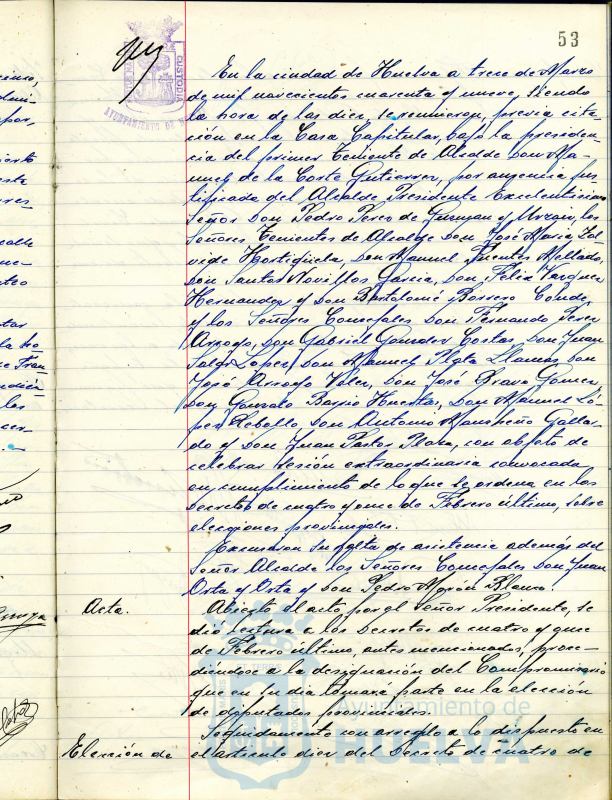 53
CUSTODIA
AYUNTAMIENTO DE
En la ciudad de Huelva a trece de Marzo
de mil novecientos cuarenta y nueve, siendo
la hora de las diez, se reunieron, previa cita-
ción en la Casa Capitular, bajo la presiden-
cia del primer Teniente de Alcalde Don Ma-
nuel de la Corte Gutierrez, por ausencia jus-
tificada del Alcalde Presidente Excelentisimo
Señor Don Pedro Perez de Guzman y Urzaiz, los
Señores Tenientes de Alcalde Don José Maria Jal-
vide Hortigüela, Don Manuel Fuentes Mellado,
Don Santos Novillos Garcia, Don Felix Vazquez
Hernandez y Don Bartolomé Borrero Conde,
y los Señores Concejales Don Fernando Perez
Arroyo, Don Gabriel Gonzalez Costas, Don Juan
Lopez, Don Manuel Plata Llamas, Don
José Arroyo Velez, Don José Bravo Gomez,
Don Gonzalo Barrio Huertas, Don Manuel Ló-
pez Rebollo, Don Antonio Manzheño Gallar-
do y Don Juan Pastor Plaza, con objeto de
celebrar sesión extraordinaria convocada
en cumplimiento de lo que se ordena en los
Decretos de cuatro y once de Febrero último, sobre
elecciones provinciales.
Excusaron su falta de asistencia además del
Señor Alcalde los Señores Concejales Don Juan
Orta y Orta y Don Pedro Morón Blanco.
Acta.
Abierto el acto por el Señor Presidente, se
dió lectura a los Decretos de cuatro y once
de Febrero último, antes mencionados, proce-
diéndose a la designación del Compromisario
que en su dia tomará parte en la elección
de diputados provinciales.
Seguidamente con arreglo a lo dispuesto en
Elección de
el artículo diez del Decreto de cuatro de
Ayuntamiento de
HUELVA